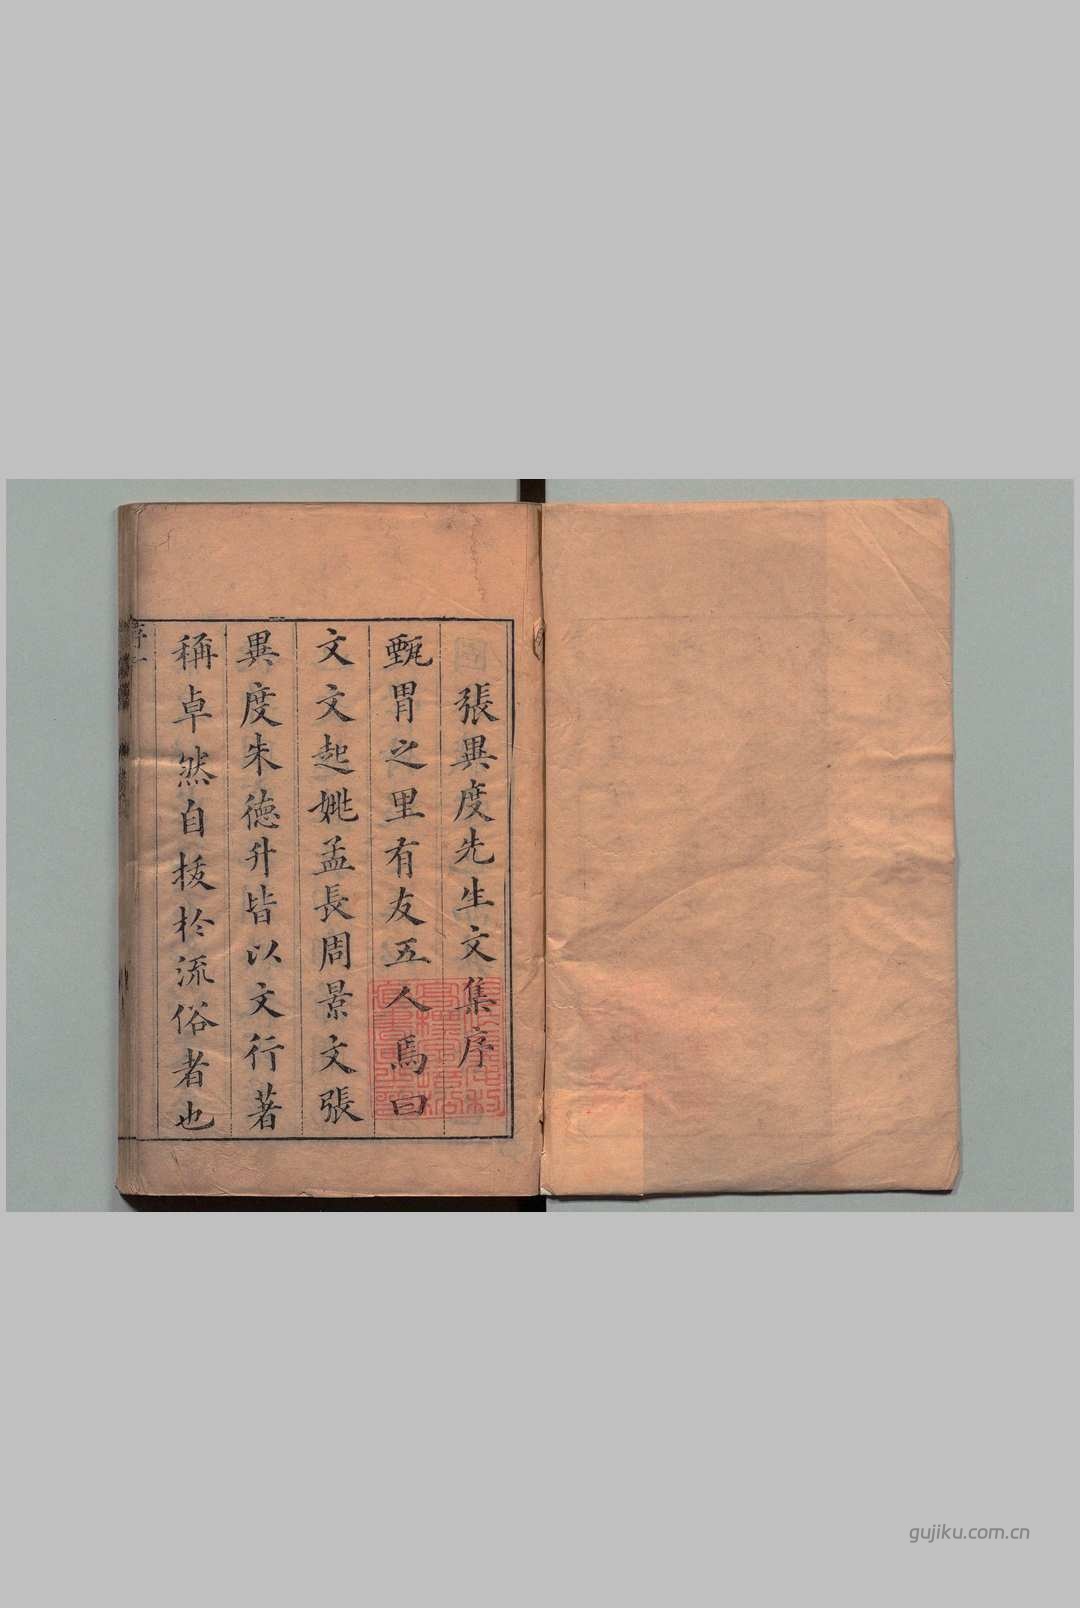 張異度先生文集序
甄胄之里有友五人焉曰
文文起姚孟長周景文張
異度朱德升皆以文行著
稱卓然自拔於流俗者也
序一
gujiku.com.cn